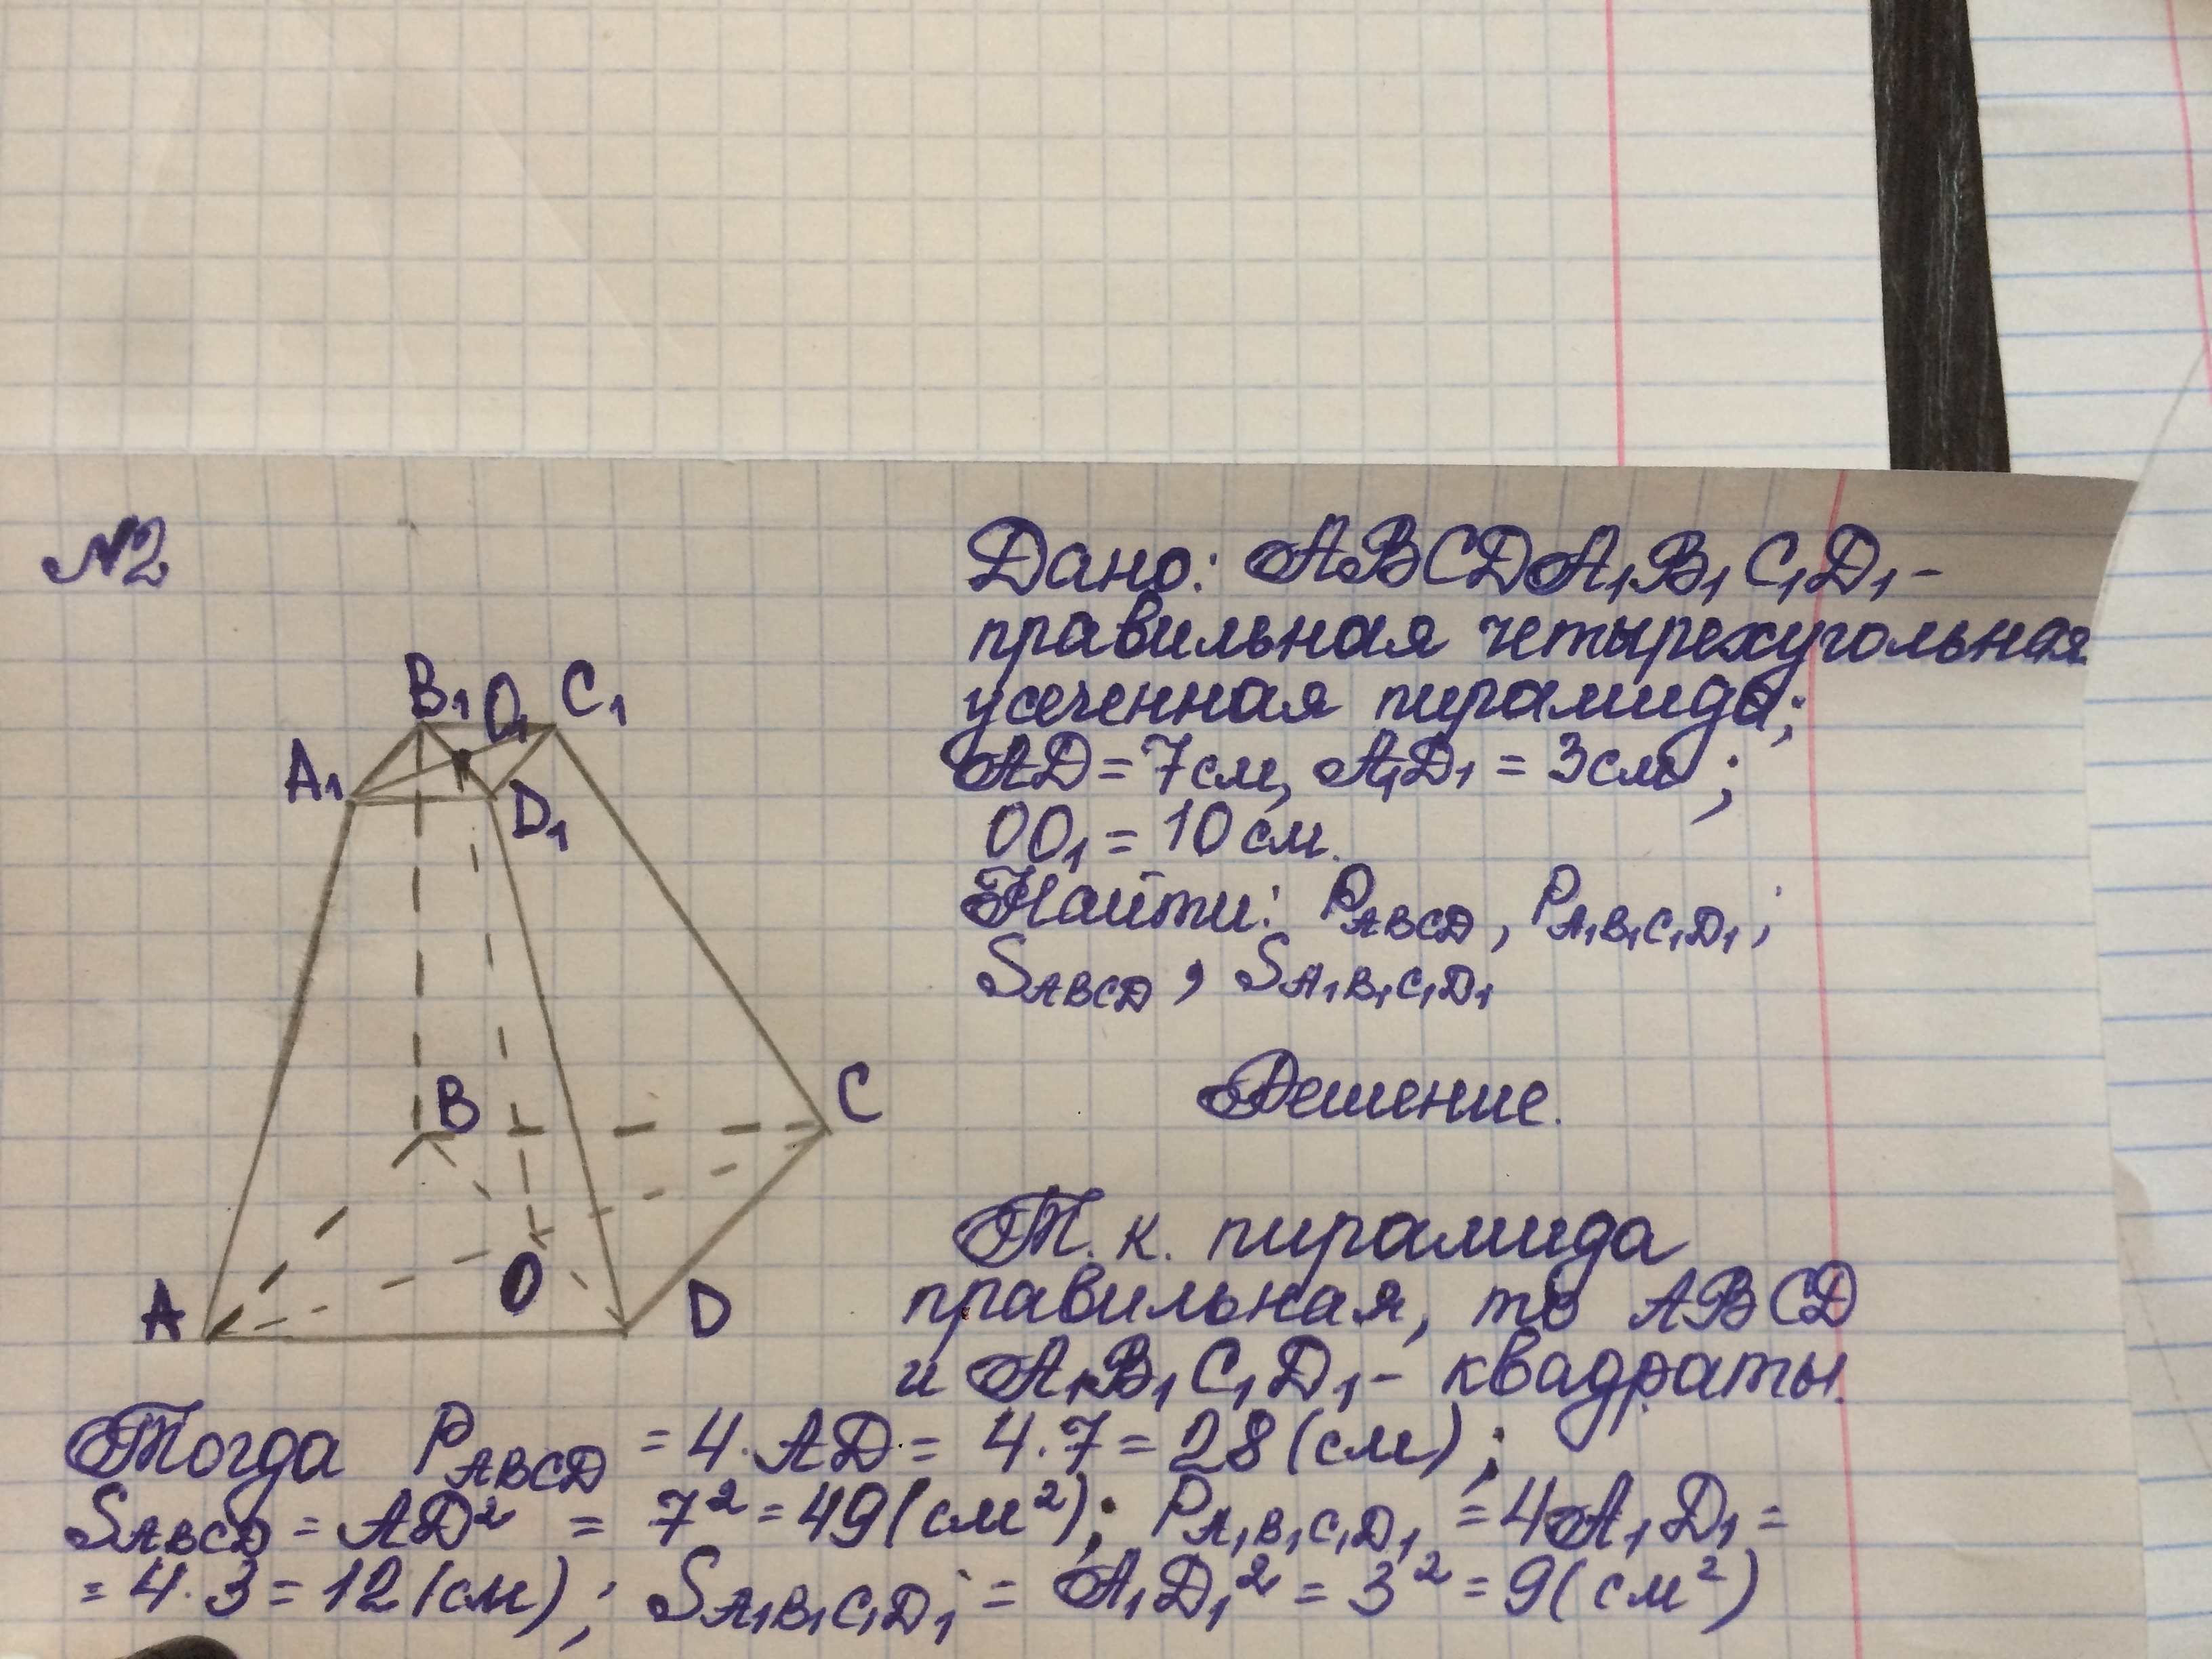 №2
B₁ O₁ C₁
A₁ D₁
B C
A O D
Дано: ABCDA₁B₁C₁D₁ -
правильная четырехугольная
усеченная пирамида;
AD = 7 см, A₁D₁ = 3 см;
OO₁ = 10 см.
Найти: P_ABCD, P_A₁B₁C₁D₁;
S_ABCD, S_A₁B₁C₁D₁
Решение.
Т. к. пирамида
правильная, то ABCD
и A₁B₁C₁D₁ - квадраты.
Тогда P_ABCD = 4·AD = 4·7 = 28 (см);
S_ABCD = AD² = 7² = 49 (см²); P_A₁B₁C₁D₁ = 4A₁D₁ =
= 4·3 = 12 (см); S_A₁B₁C₁D₁ = A₁D₁² = 3² = 9 (см²)